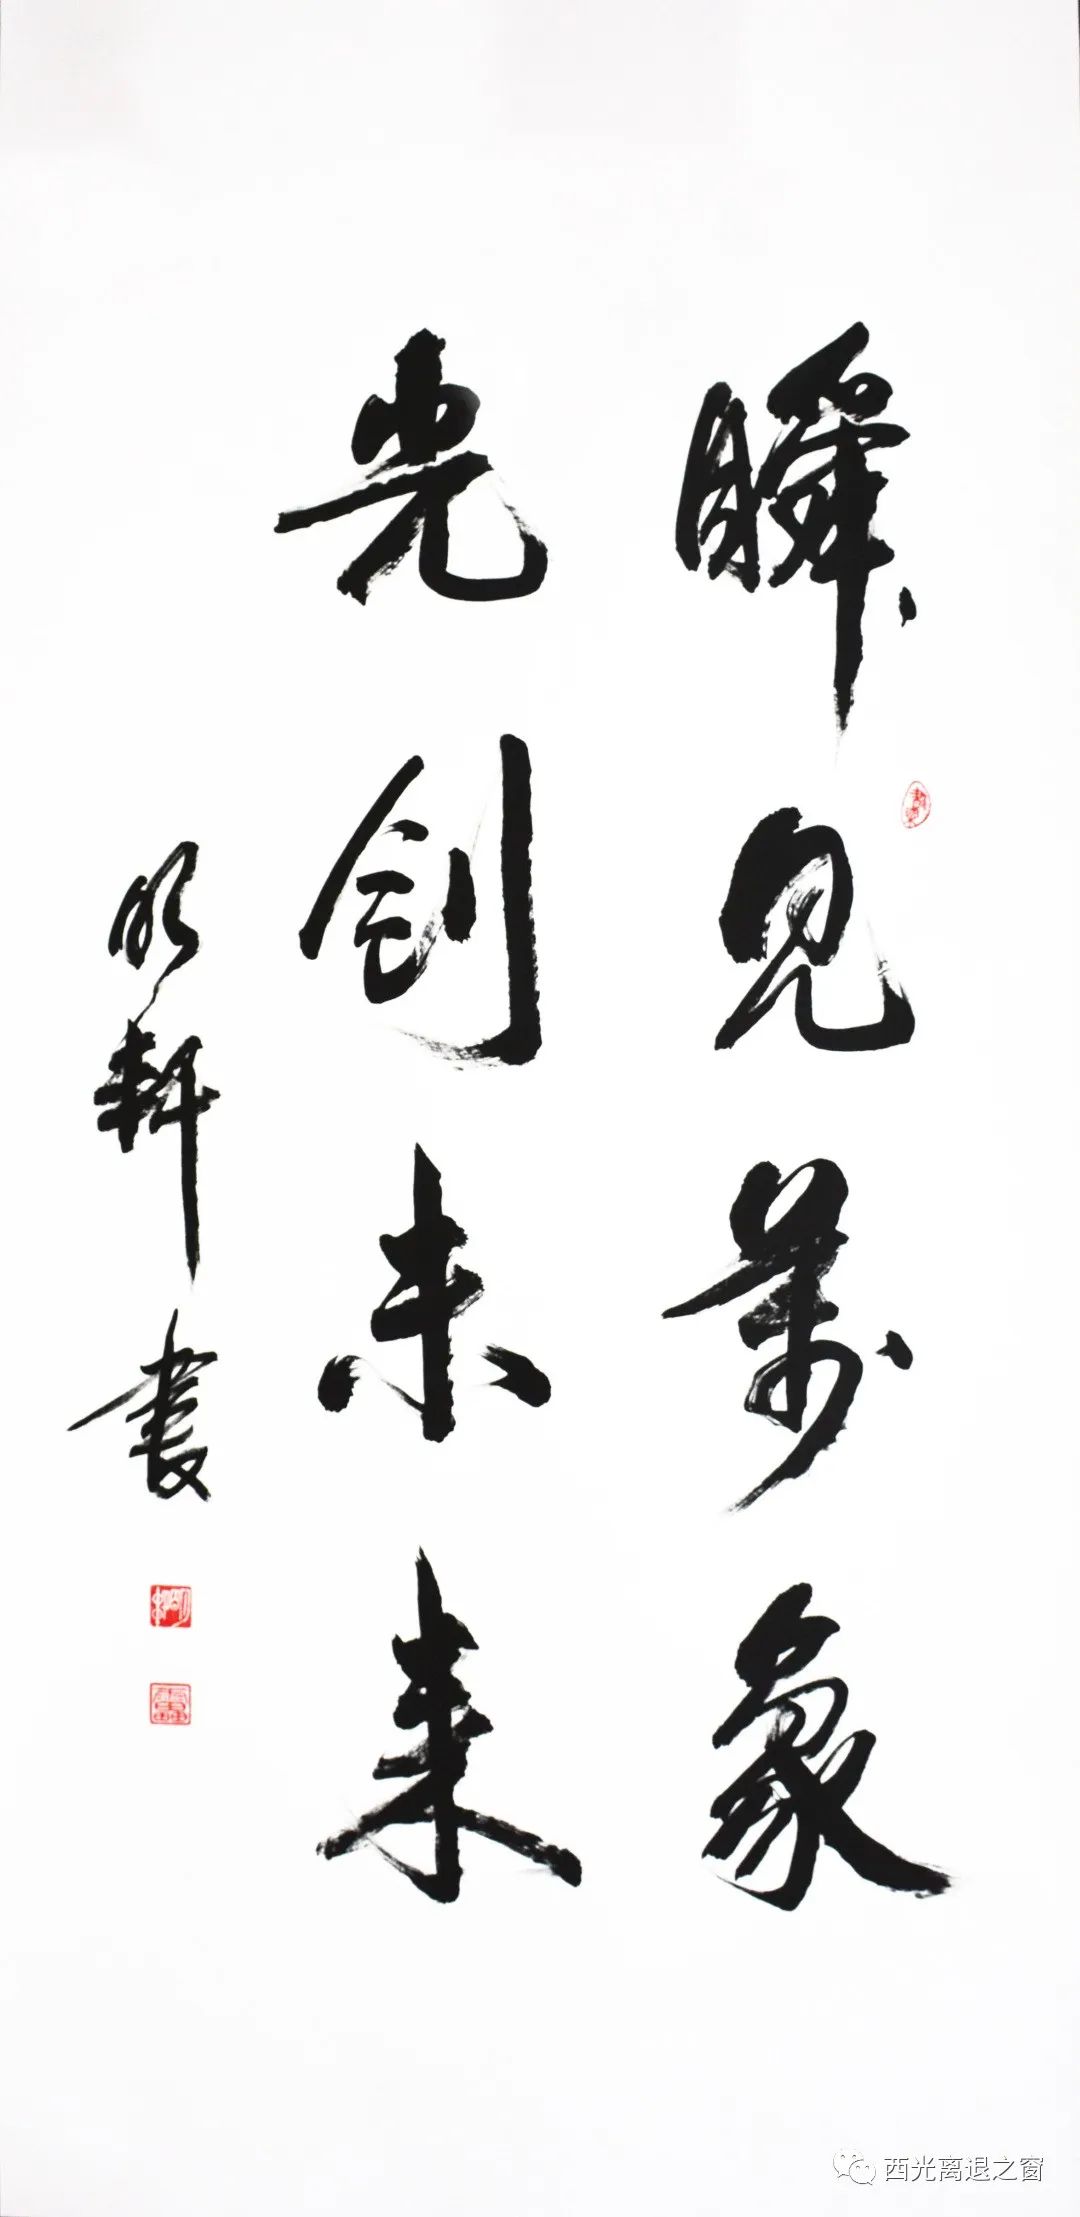 瞬見萬象
光创未来
明軒书
西光离退之窗